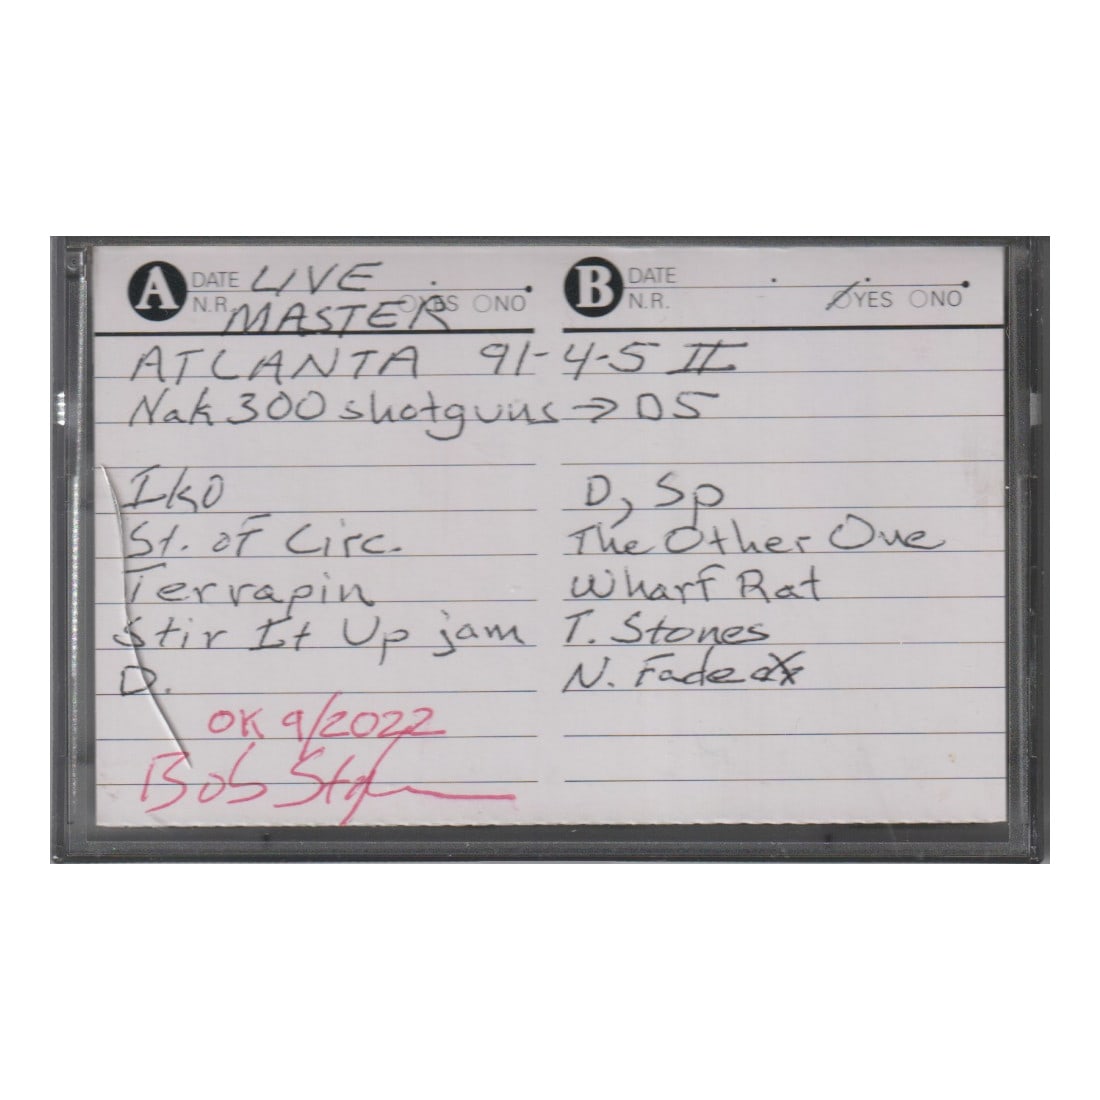 A DATE LIVE
N.R. MASTER YES NO
B DATE
N.R. YES NO
ATLANTA 91-4-5 II
Nak 300 shotguns → D5
Iko
St. of Circ.
Terrapin
Stir It Up jam
D.
OK 9/2022
Bob
D, Sp
The Other One
Wharf Rat
T. Stones
N. Fade